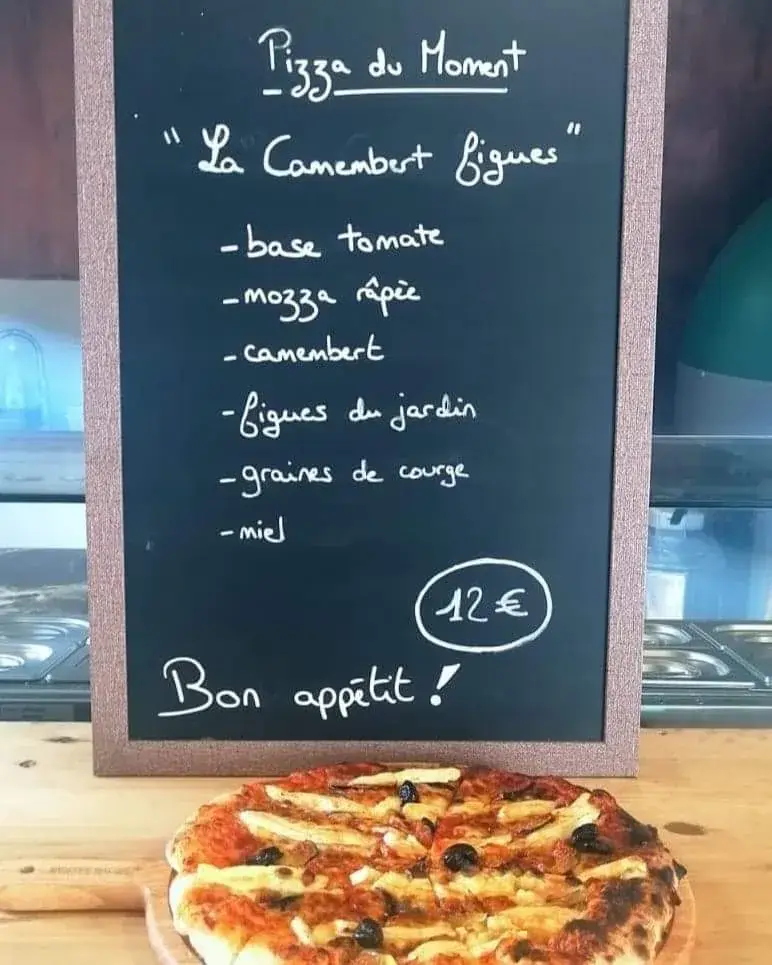 Pizza du Moment
"La Camembert figues"
- base tomate
- mozza râpée
- camembert
- figues du jardin
- graines de courge
- miel
12 €
Bon appétit !